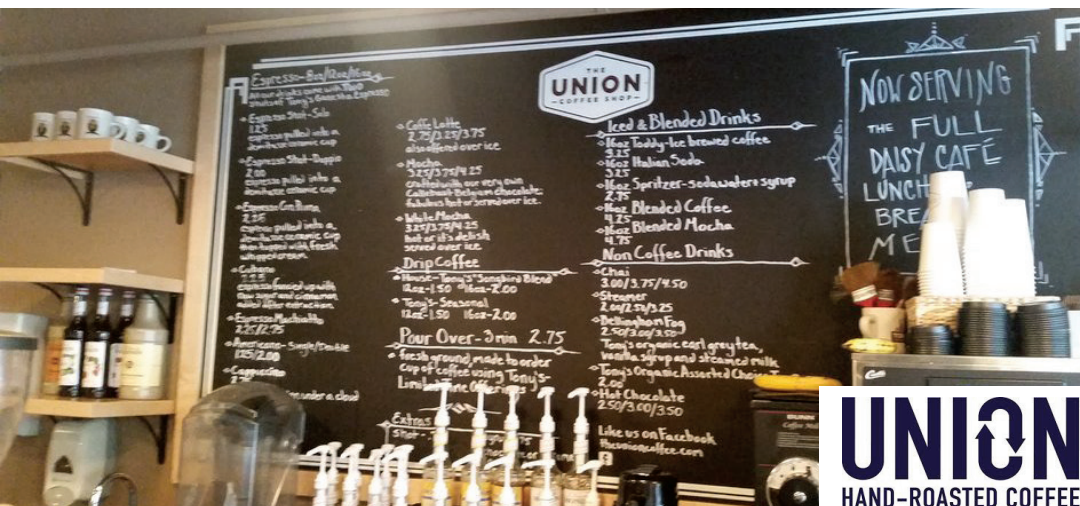 Espresso-8oz/12oz/16oz
All our drinks come with two
shots of Tony's Ganesha Espresso
Espresso Shot-Solo
1.25
espresso pulled into a
demitasse ceramic cup
Espresso Shot-Doppio
2.00
espresso pulled into a
demitasse ceramic cup
Espresso Con Panna
2.25
espresso pulled into a
demitasse ceramic cup
then topped with fresh
whipped cream
Cubano
espresso fancied up with
raw sugar and cinnamon
added after extraction.
Espresso Macchiatto
2.25/2.75
Americano-Single/Double
1.25/2.00
Cappuccino
under a cloud
Caffe Latte
2.75/3.25/3.75
also offered over ice
Mocha
3.25/3.75/4.25
crafted with our very own
Callebaut Belgium chocolate.
fabulous hot or served over ice.
White Mocha
3.25/3.75/4.25
hot or it's delish
served over ice
Drip Coffee
House-Tony's "Songbird Blend"
12oz-1.50 16oz-2.00
Tony's-Seasonal
12oz-1.50 16oz-2.00
Pour Over-3min 2.75
fresh ground, made to order
cup of coffee using Tony's-
Limited Offerings
Extras
shot-
THE
UNION
COFFEE SHOP
Iced & Blended Drinks
16oz Toddy-Ice brewed coffee
3.25
16oz Italian Soda
3.25
16oz Spritzer-sodawater+syrup
2.75
16oz Blended Coffee
4.25
16oz Blended Mocha
4.75
Non Coffee Drinks
Chai
3.00/3.75/4.50
Steamer
2.00/2.50/3.25
Bellingham Fog
2.50/3.00/3.50
Tony's organic earl grey tea,
vanilla syrup and steamed milk
Tony's Organic Assorted
2.00
Hot Chocolate
2.50/3.00/3.50
Like us on Facebook
theunioncoffee.com
NOW SERVING
THE FULL
DAISY CAFÉ
LUNCH
BREA
ME
UNION
HAND-ROASTED COFFEE